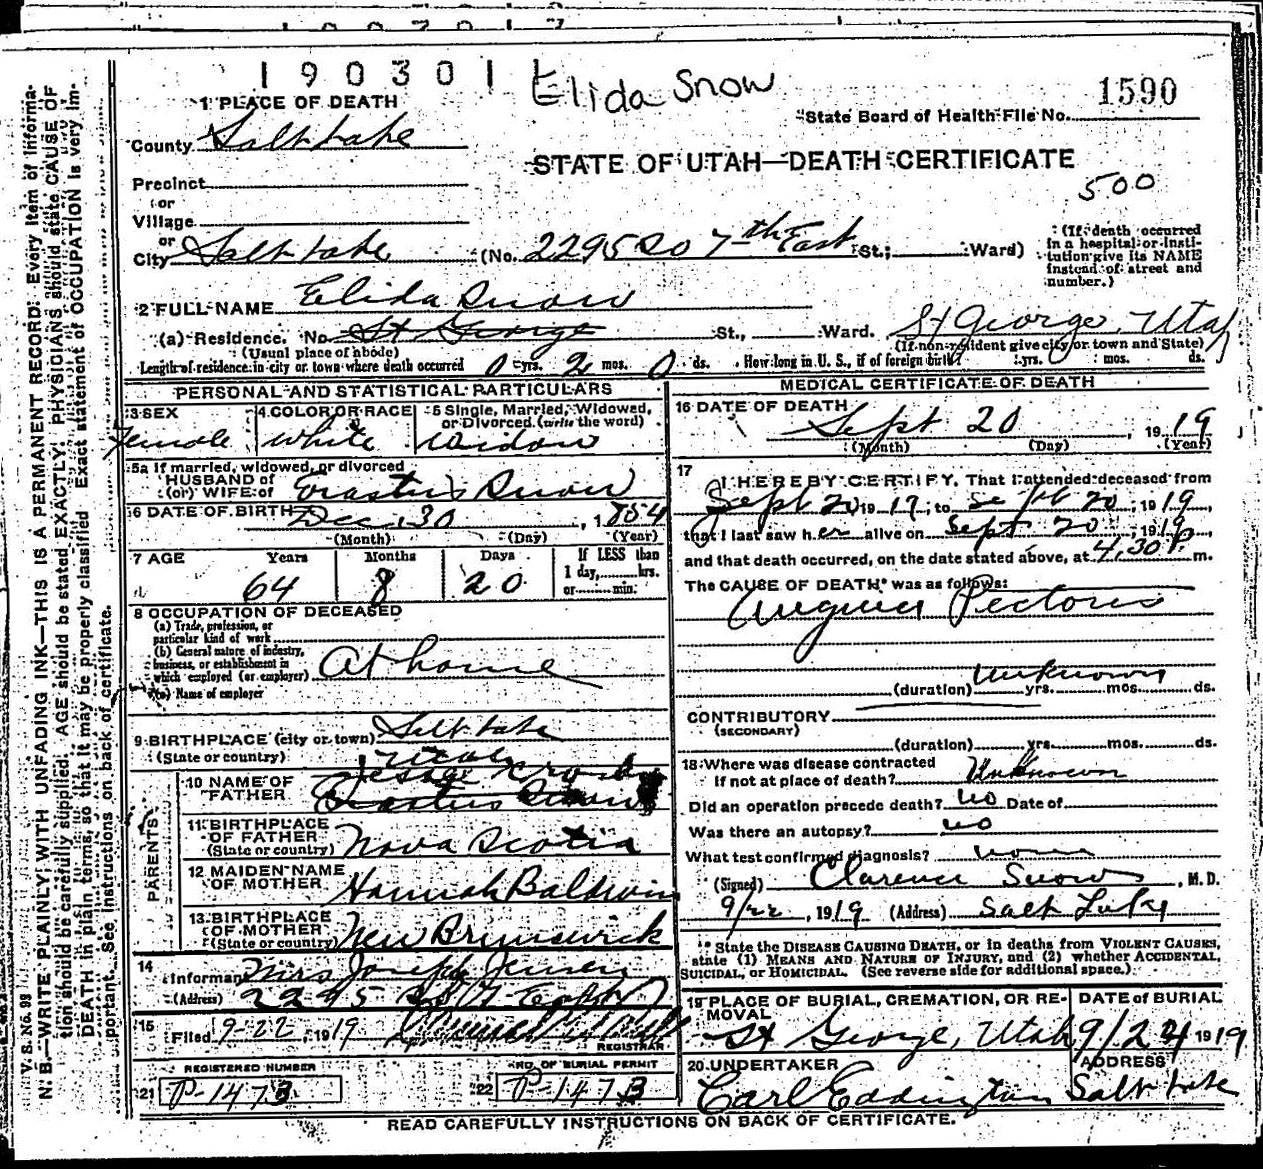 190301 Elida Snow
1590
1 PLACE OF DEATH
State Board of Health File No.
County Salt Lake
STATE OF UTAH—DEATH CERTIFICATE
500
Precinct
or
Village
or
City Salt Lake (No. 2295 So 7th East St.; Ward)
(If death occurred in a hospital or institution give its NAME instead of street and number.)
2 FULL NAME Elida Snow
(a) Residence. No St George St., Ward. St George, Utah
(Usual place of abode) (If non-resident give city or town and State)
Length of residence in city or town where death occurred 0 yrs. 2 mos. 0 ds. How long in U. S., if of foreign birth? yrs. mos. ds.
PERSONAL AND STATISTICAL PARTICULARS
3 SEX Female
4 COLOR OR RACE white
5 Single, Married, Widowed, or Divorced. (write the word) Widow
5a If married, widowed, or divorced
HUSBAND of
(or) WIFE of Erastus Snow
6 DATE OF BIRTH Dec 30, 1854
(Month) (Day) (Year)
7 AGE Years Months Days If LESS than
64 8 20 1 day, hrs.
or min.
8 OCCUPATION OF DECEASED
(a) Trade, profession, or
particular kind of work
(b) General nature of industry,
business, or establishment in
which employed (or employer) At home
(c) Name of employer
9 BIRTHPLACE (city or town) Salt Lake
(State or country) Utah
PARENTS
10 NAME OF FATHER Erastus Snow
11 BIRTHPLACE OF FATHER (State or country) Nova Scotia
12 MAIDEN NAME OF MOTHER Hannah Baldwin
13 BIRTHPLACE OF MOTHER (State or country) New Brunswick
14 Informant Mrs Joseph Jensen
(Address) 2295 So 7 East
15 Filed 9-22, 1919
REGISTRAR
REGISTERED NUMBER NO. OF BURIAL PERMIT
21 P-1473 22 P-1473
MEDICAL CERTIFICATE OF DEATH
16 DATE OF DEATH
Sept 20, 1919
(Month) (Day) (Year)
17 I HEREBY CERTIFY, That I attended deceased from
Sept 20 1917, to Sept 20, 1919,
that I last saw her alive on Sept 20, 1919,
and that death occurred, on the date stated above, at 4,30 P. m.
The CAUSE OF DEATH* was as follows:
Angina Pectoris
Unknown
(duration) yrs. mos. ds.
CONTRIBUTORY
(SECONDARY)
(duration) yrs. mos. ds.
18 Where was disease contracted
If not at place of death? Unknown
Did an operation precede death? no Date of
Was there an autopsy? no
What test confirmed diagnosis? none
(Signed) Clarence Snow, M.D.
9/22, 1919 (Address) Salt Lake
* State the DISEASE CAUSING DEATH, or in deaths from VIOLENT CAUSES,
state (1) MEANS AND NATURE OF INJURY, and (2) whether ACCIDENTAL,
SUICIDAL, or HOMICIDAL. (See reverse side for additional space.)
19 PLACE OF BURIAL, CREMATION, OR REMOVAL St George, Utah
DATE of BURIAL 9/24 1919
20 UNDERTAKER Carl Eddington
ADDRESS Salt Lake
READ CAREFULLY INSTRUCTIONS ON BACK OF CERTIFICATE.
V. S. No. 93
N. B.—WRITE PLAINLY, WITH UNFADING INK—THIS IS A PERMANENT RECORD. Every item of information should be carefully supplied. AGE should be stated EXACTLY. PHYSICIANS should state CAUSE OF DEATH in plain terms, so that it may be properly classified. Exact statement of OCCUPATION is very important. See instructions on back of certificate.